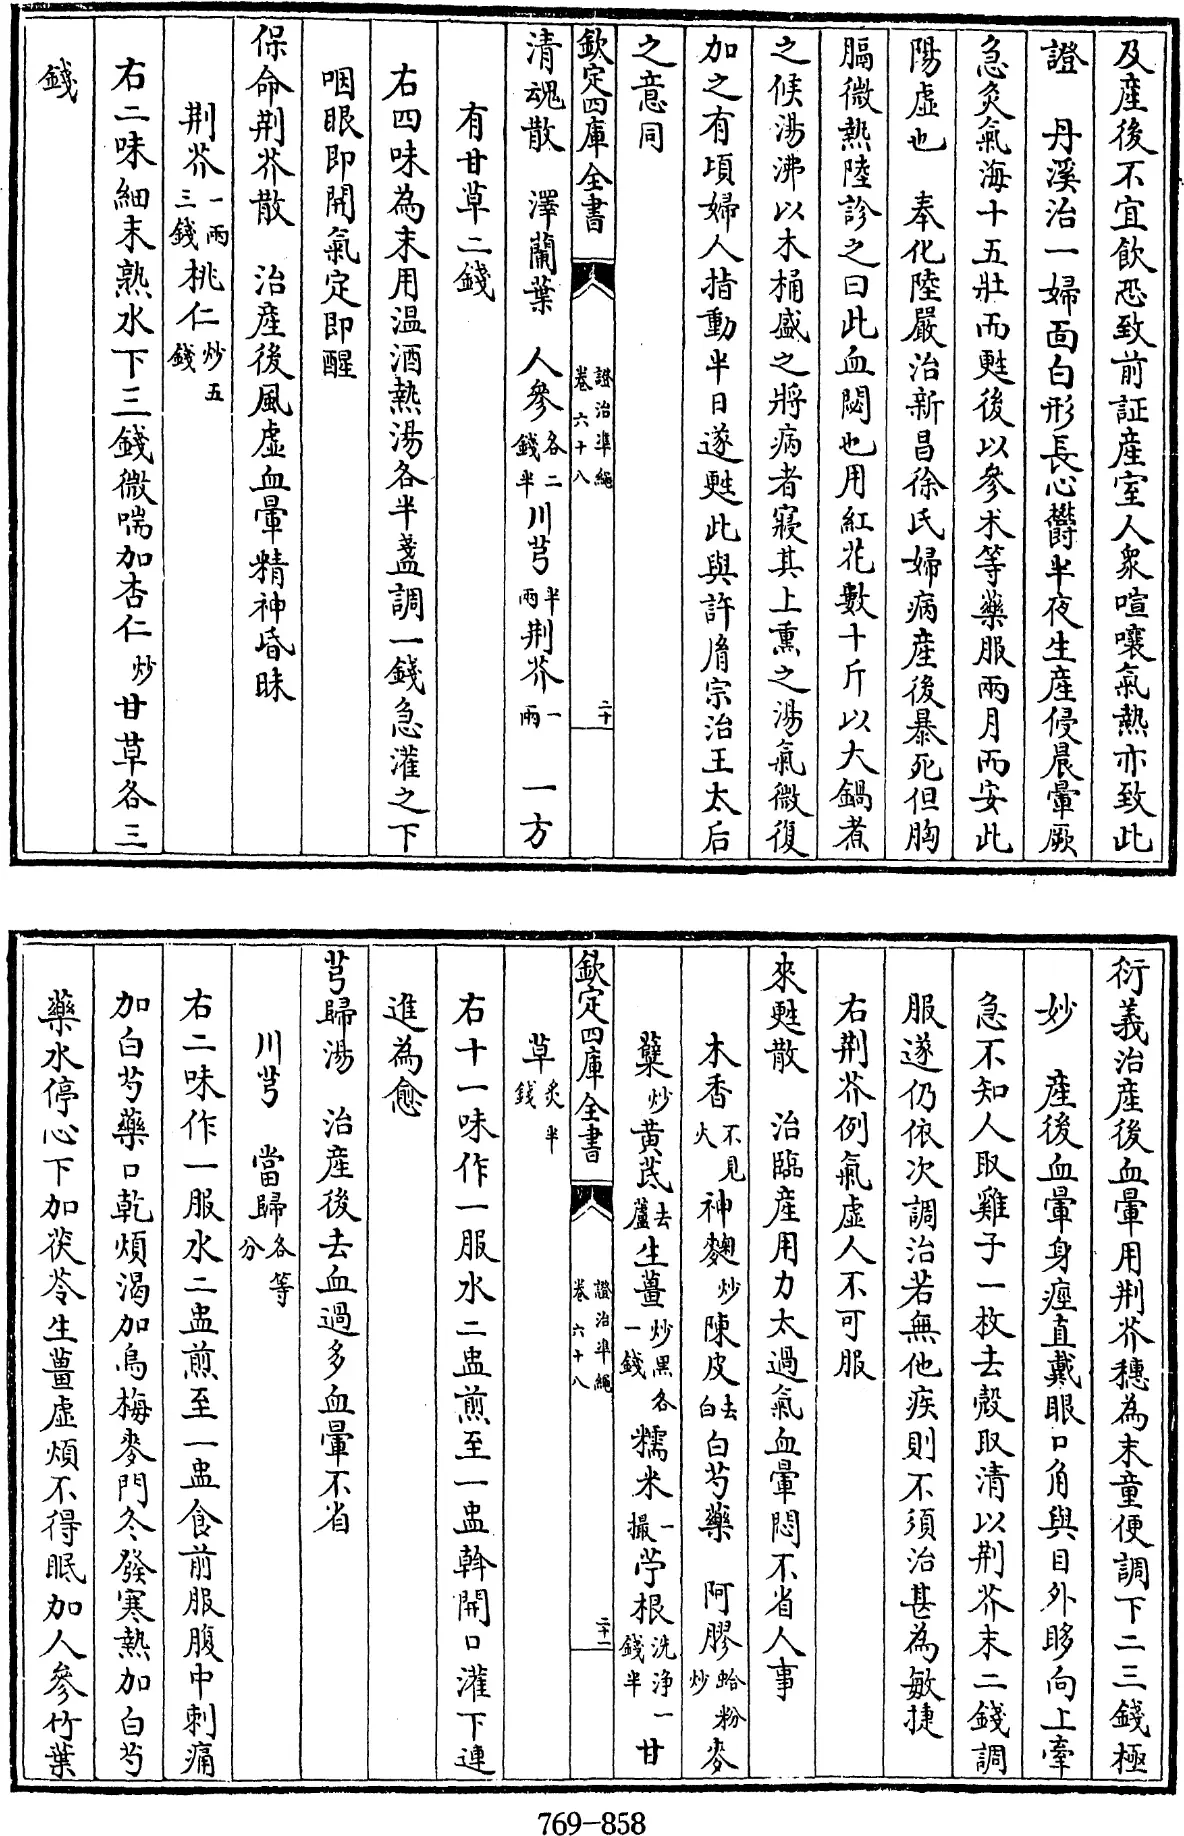 及產後不宜飲恐致前証產室人衆喧嚷氣熱亦致此
證　丹溪治一婦面白形長心鬱半夜生產侵晨暈厥
急灸氣海十五壯而甦後以參术等藥服兩月而安此
陽虛也　奉化陸嚴治新昌徐氏婦病產後暴死但胸
膈微熱陸診之曰此血悶也用紅花數十斤以大鍋煮
之候湯沸以木桶盛之將病者寢其上熏之湯氣微復
加之有頃婦人指動半日遂甦此與許胤宗治王太后
之意同
欽定四庫全書　證治準繩　卷六十八　二十
清魂散　澤蘭葉　人參各二錢半川芎半兩荆芥一兩　一方
有甘草二錢
右四味為末用温酒熱湯各半盞調一錢急灌之下
咽眼即開氣定即醒
保命荆芥散　治產後風虛血暈精神昏昧
荆芥一兩三錢桃仁炒五錢
右二味細末熟水下三錢微喘加杏仁炒甘草各三
錢
衍義治產後血暈用荆芥穗為末童便調下二三錢極
妙　產後血暈身痙直戴眼口角與目外眵向上牽
急不知人取雞子一枚去殼取清以荆芥末二錢調
服遂仍依次調治若無他疾則不須治甚為敏捷
右荆芥例氣虛人不可服
來甦散　治臨產用力太過氣血暈悶不省人事
木香不見火神麴炒陳皮去白白芍藥　阿膠蛤粉炒麥
蘗炒黃芪去蘆生薑炒黑各一錢糯米一撮苧根洗淨一錢半甘
草炙半錢
欽定四庫全書　證治準繩　卷六十八　二十一
右十一味作一服水二盅煎至一盅斡開口灌下連
進為愈
芎歸湯　治產後去血過多血暈不省
川芎　當歸各等分
右二味作一服水二盅煎至一盅食前服腹中刺痛
加白芍藥口乾煩渴加烏梅麥門冬發寒熱加白芍
藥水停心下加茯苓生薑虛煩不得眠加人參竹葉
769-858